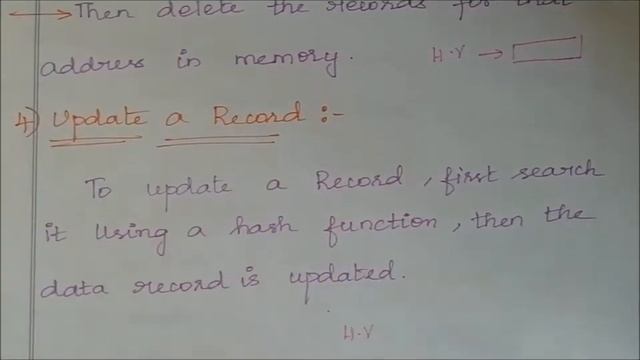 → Then delete the records for that
address in memory.
H.V →
4) Update a Record :-
To update a Record, first search
it using a hash function, then the
data record is updated.
H.V